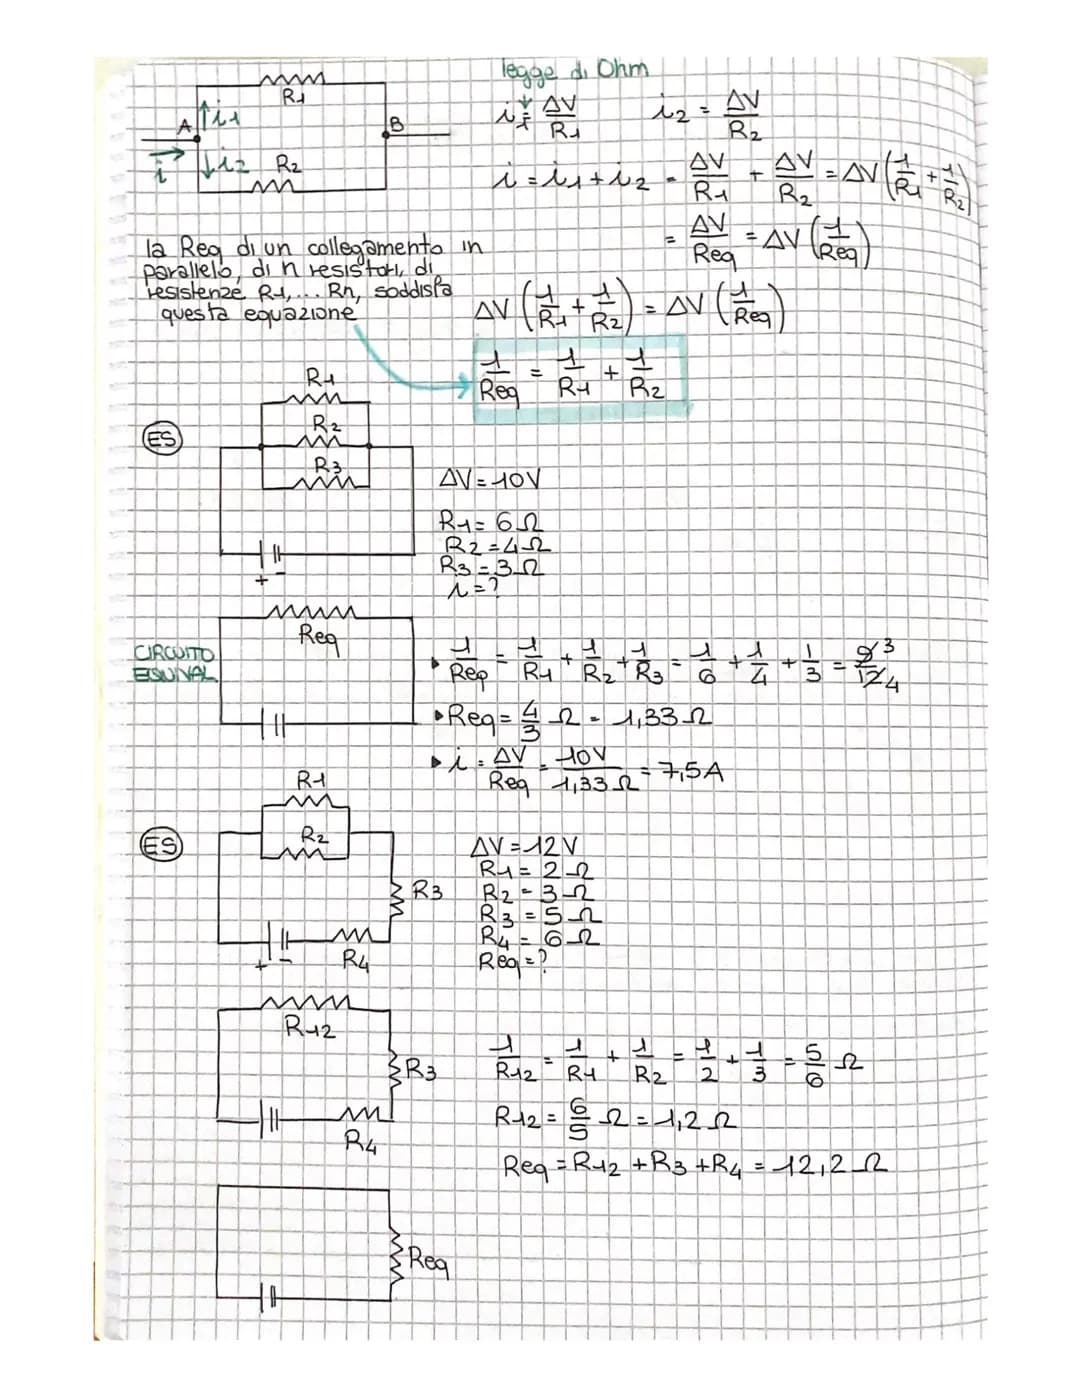 legge di Ohm
R1
i1
A
B
i
i2
R2
i1 = ΔV/R1
i2 = ΔV/R2
i = i1 + i2 = ΔV/R1 + ΔV/R2 = ΔV (1/R1 + 1/R2)
= ΔV/Req = ΔV (1/Req)
la Req di un collegamento in
parallelo, di n resistori, di
resistenze R1,... Rn, soddisfa
questa equazione
ΔV (1/R1 + 1/R2) = ΔV (1/Req)
1/Req = 1/R1 + 1/R2
ES
R1
R2
R3
+ -
ΔV = 10V
R1 = 6Ω
R2 = 4Ω
R3 = 3Ω
i = ?
CIRCUITO
EQUIVAL.
Req
1/Req = 1/R1 + 1/R2 + 1/R3 = 1/6 + 1/4 + 1/3 = 9/12 3/4
Req = 4/3 Ω = 1,33 Ω
i = ΔV/Req = 10V/1,33Ω = 7,5A
ES
R1
R2
R3
R4
+ -
ΔV = 12V
R1 = 2Ω
R2 = 3Ω
R3 = 5Ω
R4 = 6Ω
Req = ?
R12
R3
R4
1/R12 = 1/R1 + 1/R2 = 1/2 + 1/3 = 5/6 Ω
R12 = 6/5 Ω = 1,2 Ω
Req = R12 + R3 + R4 = 12,2 Ω
Req